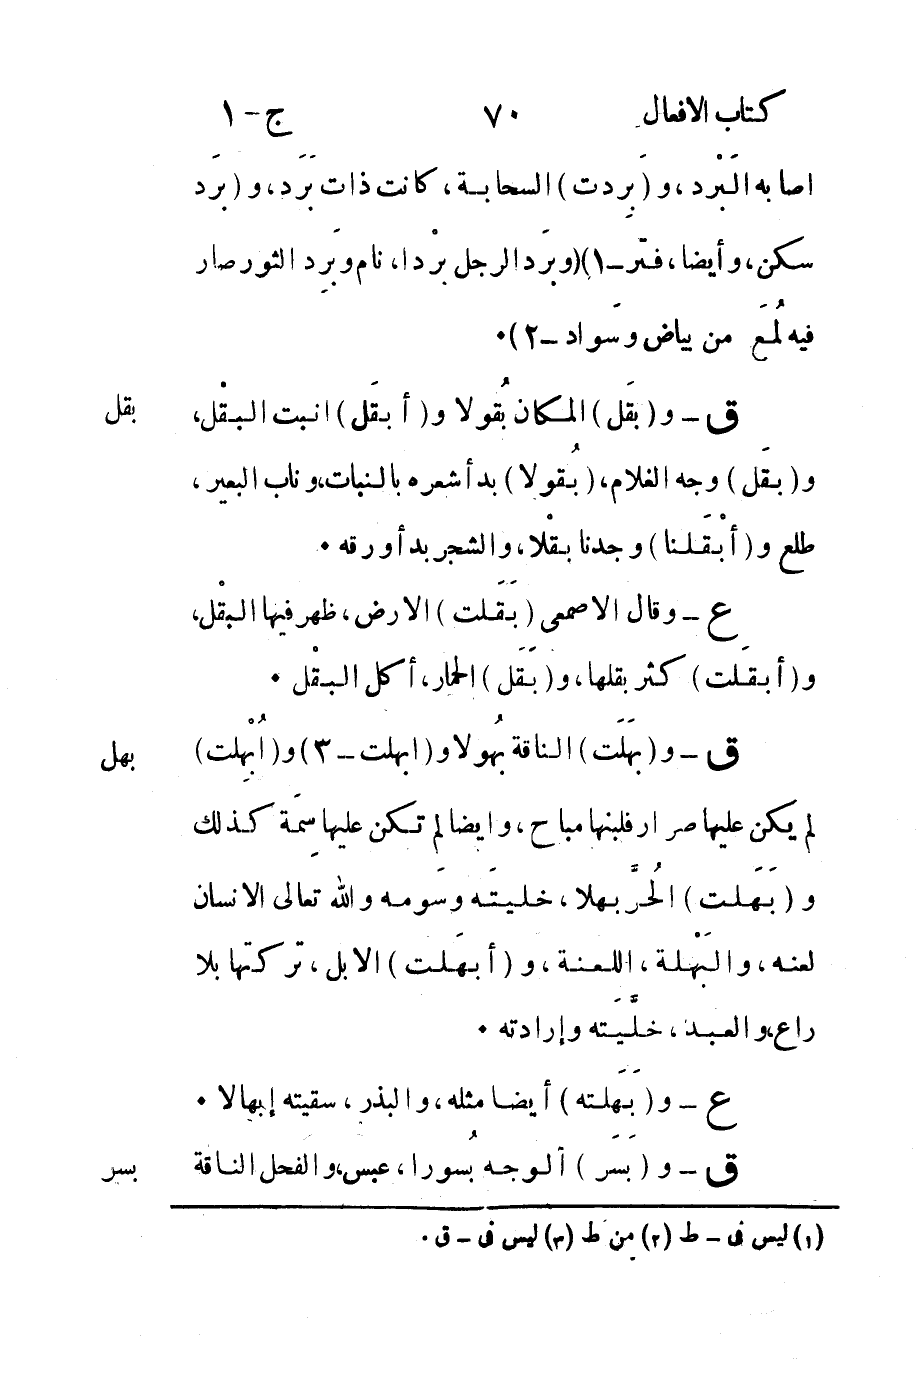 كتاب الافعال ٧٠ ج-١
اصابه البَرْد، و (بَرِدت) السحابة، كانت ذات بَرَد، و (بَرَد
سكن، وأيضا، فتّر-١)(وبَرَد الرجل برْدا، نام وبَرِد الثور صار
فيه لُمَع من بياض وسَواد -٢)٠
ق - و (بقَل) المكان بُقولا و (أبقَل) انبت البقْل، بقل
و (بقَل) وجه الغلام، (بُقولا) بدأ شعره بالنبات، وناب البعير،
طلع و (أبْقَلنا) وجدنا بقْلا، والشجر بدأ ورقه ٠
ع - وقال الاصمعى (بَقَلت) الارض، ظهر فيها البقْل،
و (أبقَلت) كثر بقلها، و (بَقَل) الحمار، أكل البقْل ٠
ق - و (بهَلَت) الناقة بُهولا و (ابهلت - ٣) و (اُبْهِلت) بهل
لم يكن عليها صرار فلبنها مباح، وايضا لم تكن عليها سِمَة كذلك
و (بَهَلت) الحُرَّ بهلا، خليتَه وسَومه والله تعالى الانسان
لعنه، والبَهْلة، اللعنة، و (أبهَلت) الابل، تركتها بلا
راع، والعبد، خلَّيَته وإرادته ٠
ع - و (بَهَلته) أيضا مثله، والبذر، سقيته إبهالا ٠
ق - و (بَسَر) الوجه بُسورا، عبس، والفحل الناقة بسر
(١) ليس فى - ط (٢) من ط (٣) ليس فى - ق ٠